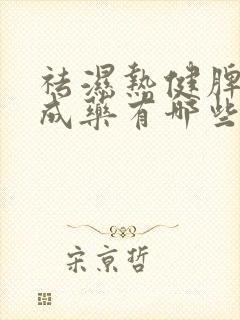 祛濕熱健脾
成藥有哪些
宋京哲